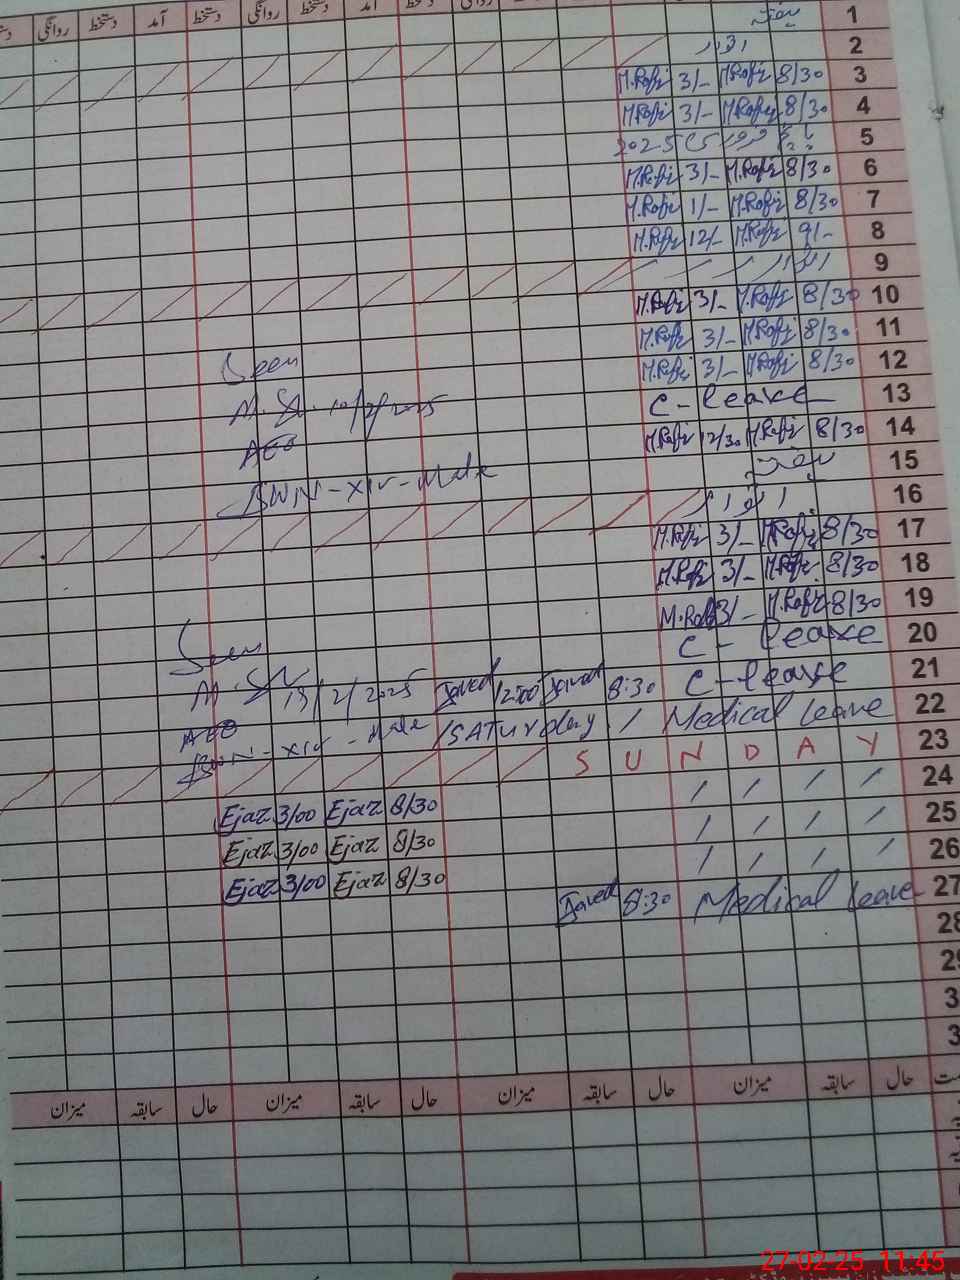 روانگی دستخط آمد دستخط روانگی دستخط آمد دستخط روانگی
1 ہفتہ
2 اتوار
3 8/30 M.Rafiz 3/- M.Rafiz
4 8/30 M.Rafiz 3/- M.Rafiz
5 فروری 2025
6 8/30 M.Rafiz 3/- M.Rafiz
7 8/30 M.Rafiz 1/- M.Rafiz
8 9/- M.Rafiz 12/- M.Rafiz
9 اتوار
10 8/30 M.Rafiz 3/- M.Rafiz
11 8/30 M.Rafiz 3/- M.Rafiz
12 8/30 M.Rafiz 3/- M.Rafiz
Seen
13 C-leave
10/2/2025
14 8/30 M.Rafiz 12/30 M.Rafiz
AEO
15 ہفتہ
BWN-XIV-Male
16 اتوار
17 8/30 M.Rafiz 3/- M.Rafiz
18 8/30 M.Rafiz 3/- M.Rafiz
19 8/30 M.Rafiz 3/- M.Rafiz
Seen
20 C-leave
21 C-leave
8:30 Javed 12:00 Javed
19/2/2025
22 Medical leave
/SATurday /
AEO
BWN-XIV-Male
23 SUNDAY
24 / / / /
8/30 Ejaz 3/00 Ejaz
25 / / / /
8/30 Ejaz 3/00 Ejaz
26 / / / /
8/30 Ejaz 3/00 Ejaz
27 Medical leave
8:30 Javed
28
29
3
3
حال سابقہ میزان حال سابقہ میزان حال سابقہ میزان حال سابقہ میزان
27-02-25 11:45